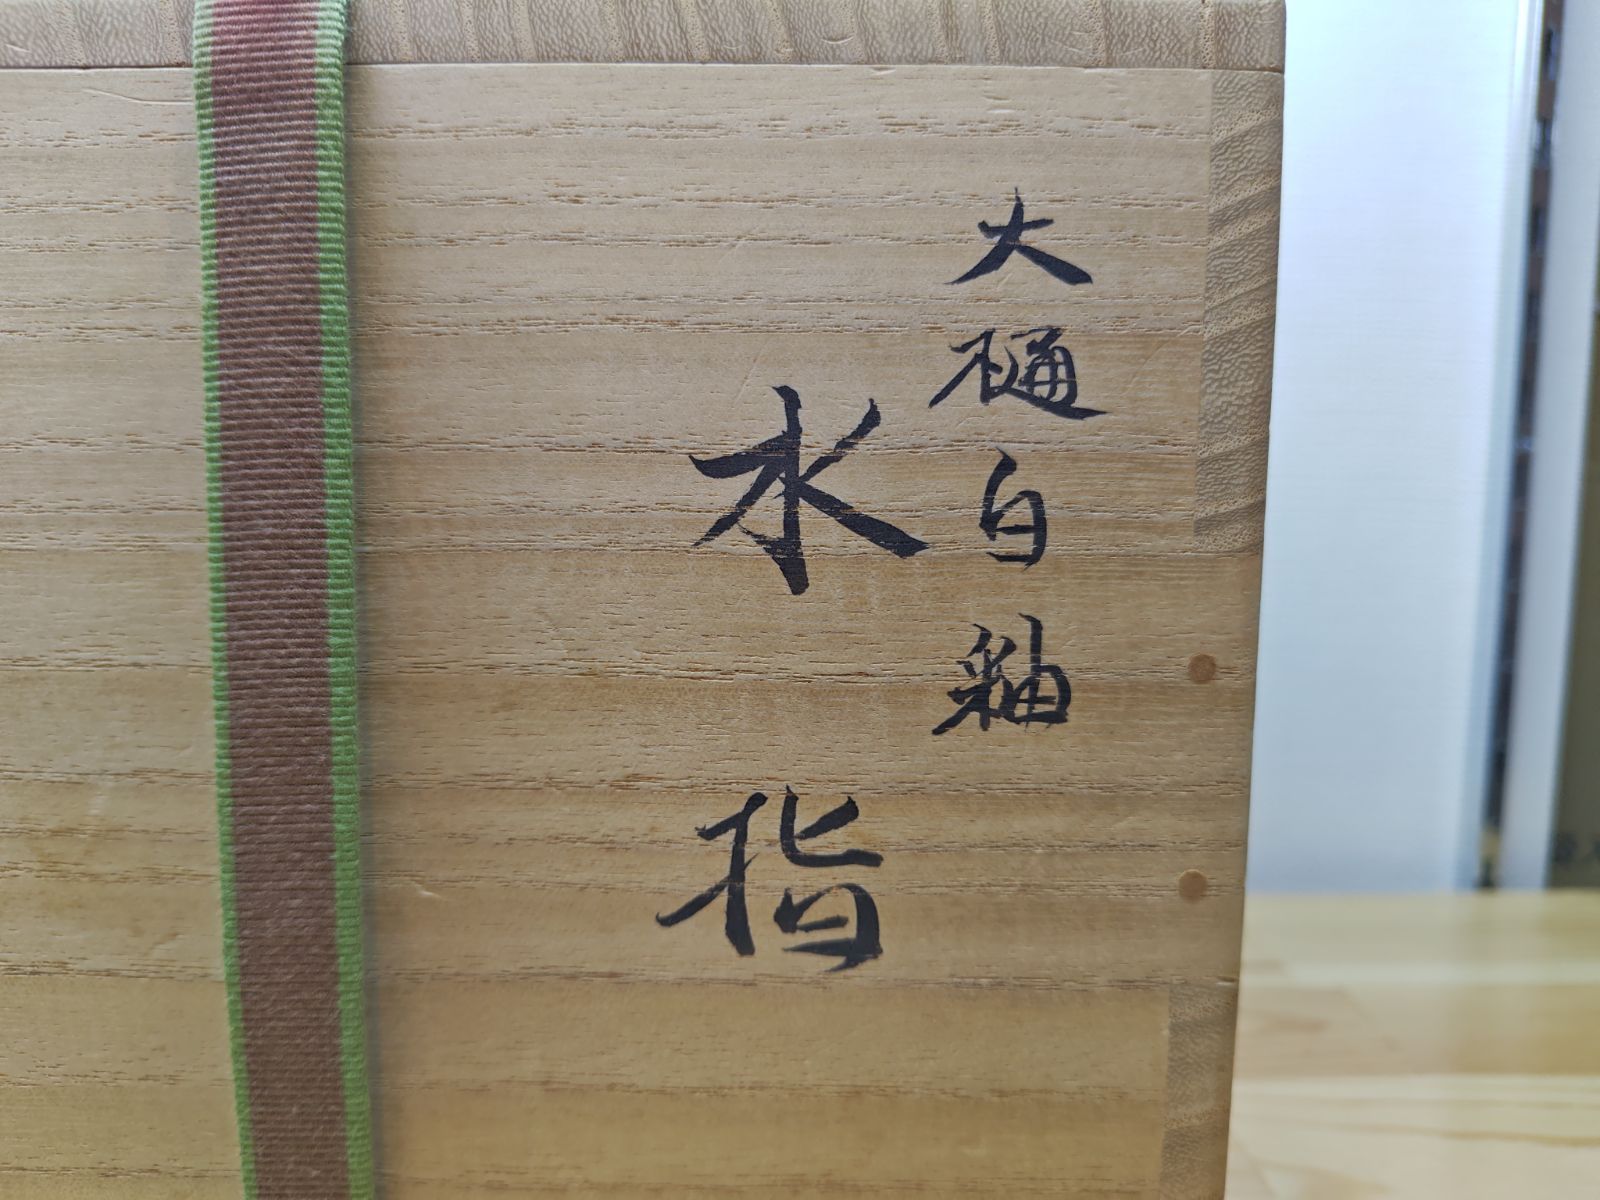 大樋白釉
水指